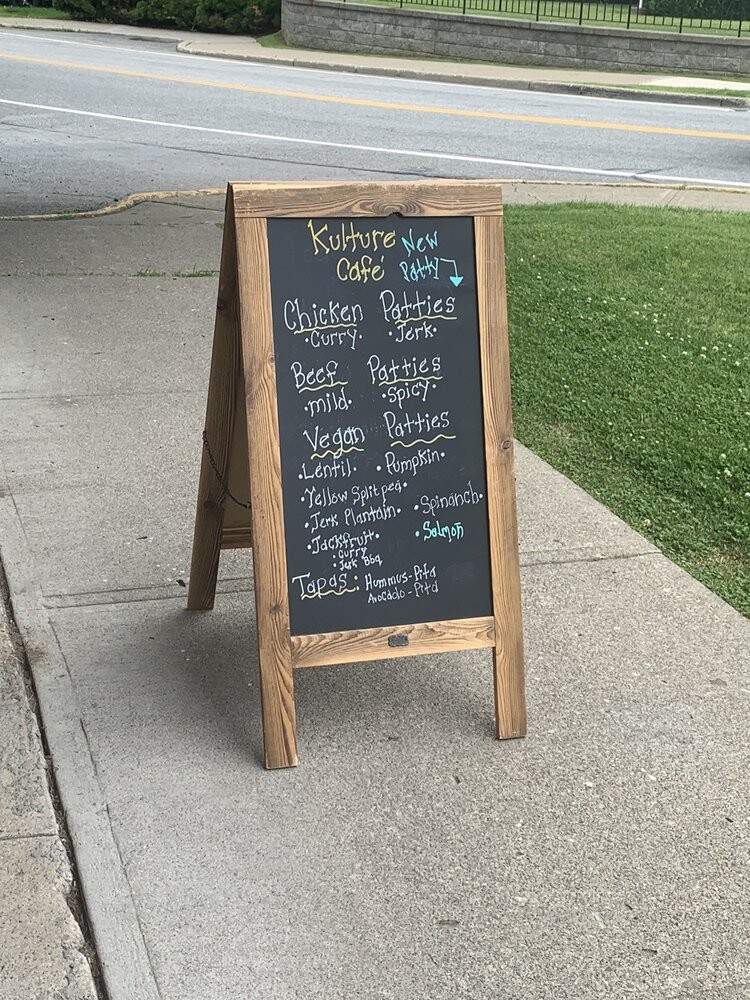 Kulture New
Café Patty
Chicken Patties
•Curry• •Jerk•
Beef Patties
•mild• •spicy•
Vegan Patties
•Lentil• •Pumpkin•
•Yellow Split pea•
•Jerk Plantain• •Spinanch•
•Jackfruit• •Salmon
•Curry
•Jerk BBQ
Tapas: Hummus-Pita
Avocado-Pita